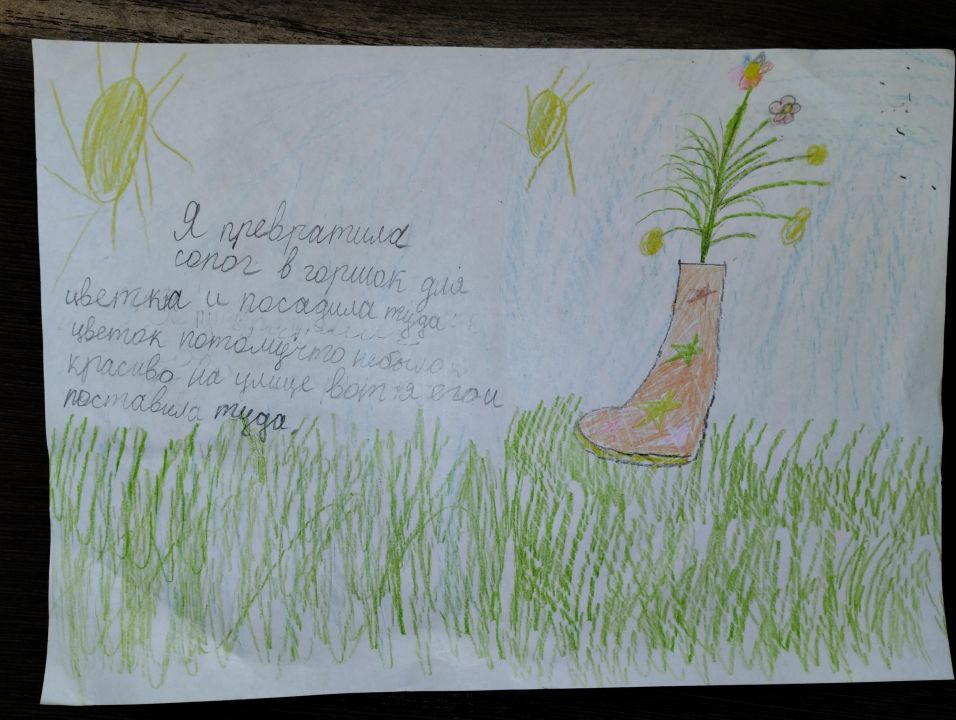 Я превратила
сопог в горшок для
цветка и посадила туда
цветок потомучто небыло
красиво на улице вот я его и
поставила туда.